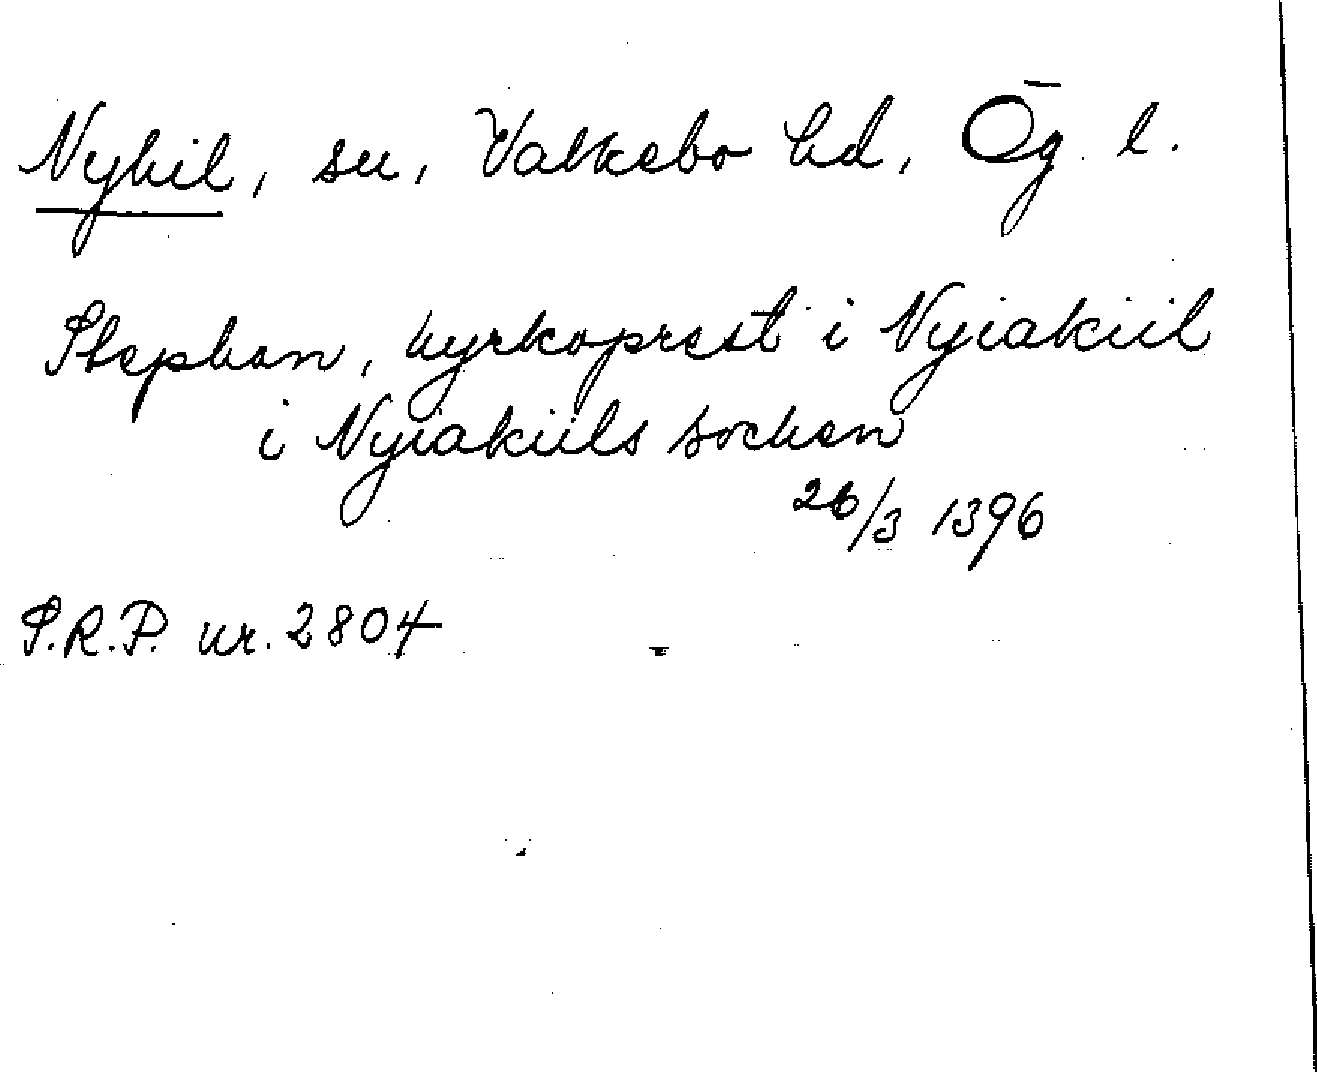 Nykil, sn, Valkebo hd, Ög. l.
Stephan, kyrkoprest i Nyiakiil
i Nyiakiils socken
26/3 1396
S.R.P. nr. 2804